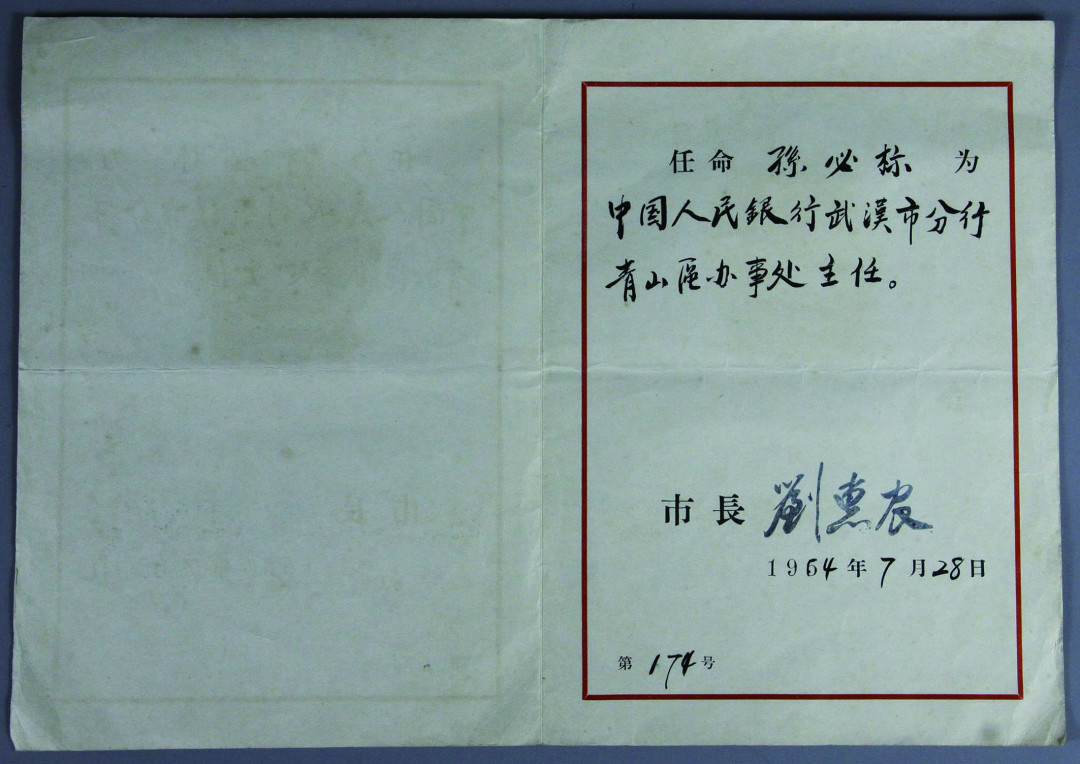 任命 孫必标 为
中国人民銀行武漢市分行
青山區办事处主任。
市長 劉惠农
1964年7月28日
第174号